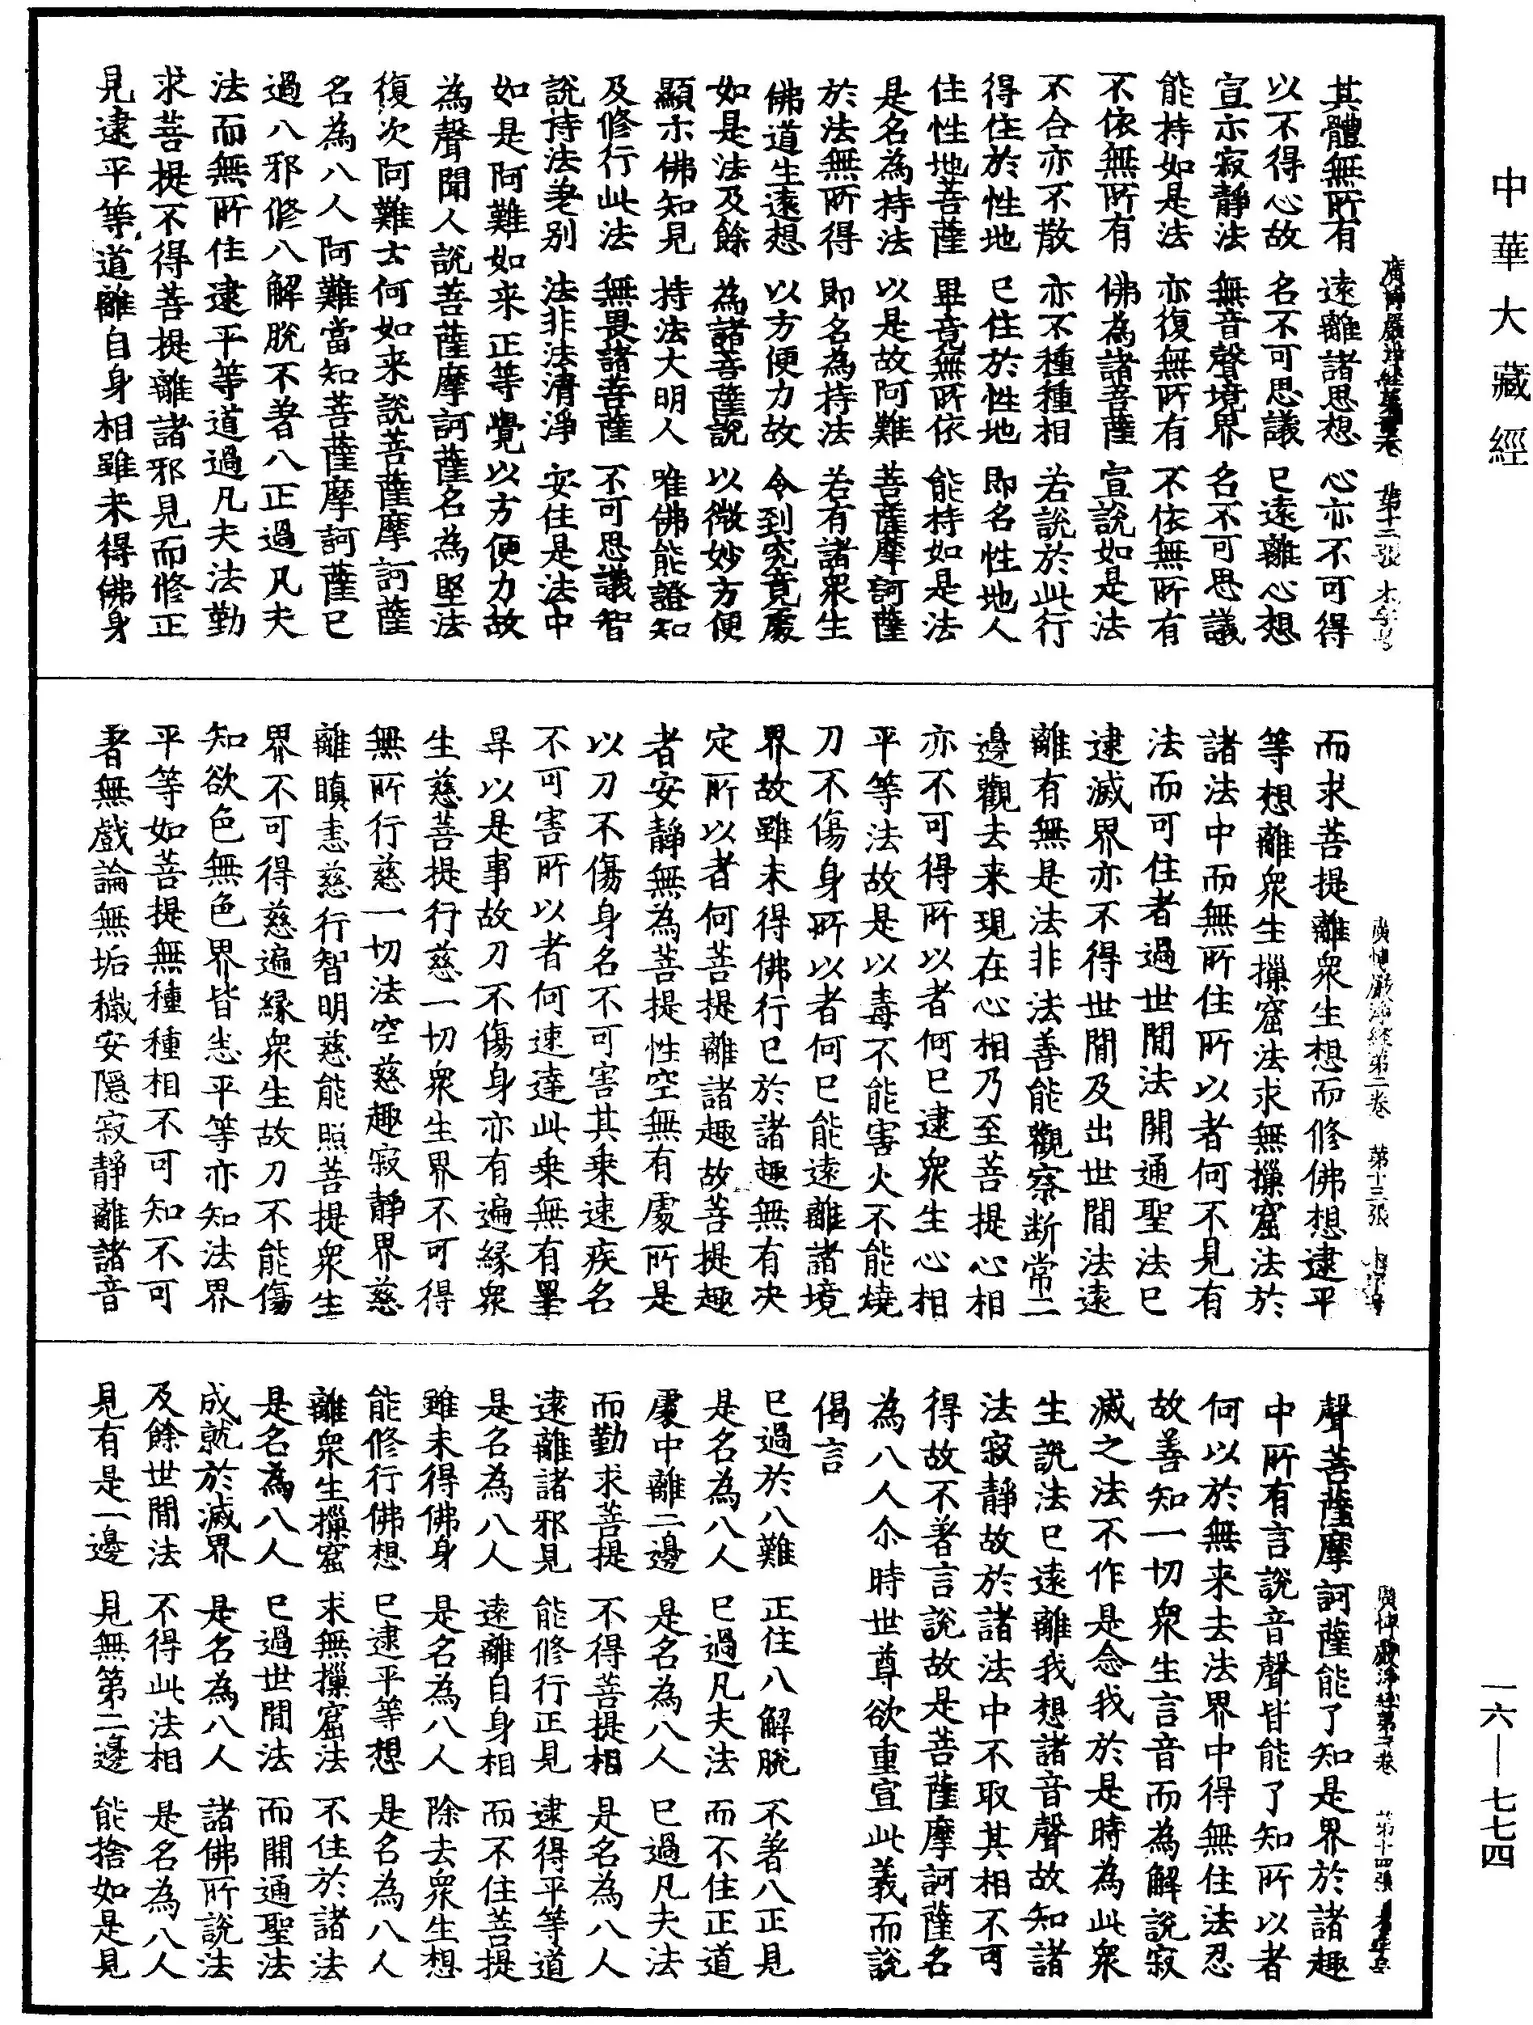 中華大藏經
其體無所有　遠離諸思想　心亦不可得
以不得心故　名不可思議　已遠離心想
宣示寂靜法　無音聲境界　名不可思議
能持如是法　亦復無所有　不依無所有
不依無所有　佛為諸菩薩　宣說如是法
不合亦不散　亦不種種相　若說於此行
得住於性地　已住於性地　即名性地人
住性地菩薩　畢竟無所依　能持如是法
是名為持法　以是故阿難　菩薩摩訶薩
於法無所得　即名為持法　若有諸衆生
佛道生遠想　以方便力故　令到究竟處
如是法及餘　為諸菩薩說　以微妙方便
顯示佛知見　持法大明人　唯佛能證知
及修行此法　無畏諸菩薩　不可思議智
說持法差別　法非法清淨　安住是法中
如是阿難如来正等覺以方便力故
為聲聞人說菩薩摩訶薩名為堅法
復次阿難云何如来說菩薩摩訶薩
名為八人阿難當知菩薩摩訶薩已
過八邪修八解脫不著八正過凡夫
法而無所住逮平等道過凡夫法勤
求菩提不得菩提離諸邪見而修正
見逮平等道離自身相雖未得佛身
第十三張
而求菩提離衆生想而修佛想逮平
等想離衆生摷窟法求無摷窟法於
諸法中而無所住所以者何不見有
法而可住者過世間法開通聖法已
逮滅界亦不得世間及出世間法遠
離有無是法非法善能觀察断常二
邊觀去来現在心相乃至菩提心相
亦不可得所以者何已逮衆生心相
平等法故是以毒不能害火不能燒
刀不傷身所以者何已能遠離諸境
界故雖未得佛行已於諸趣無有決
定所以者何菩提離諸趣故菩提趣
者安靜無為菩提性空無有處所是
以刀不傷身名不可害其乘速疾名
不可害所以者何速達此乘無有罣
㝵以是事故刀不傷身亦有遍緣衆
生慈菩提行慈一切衆生界不可得
無所行慈一切法空慈趣寂靜界慈
離瞋恚慈行智明慈能照菩提衆生
界不可得慈遍緣衆生故刀不能傷
知欲色無色界皆悉平等亦知法界
平等如菩提無種種相不可知不可
著無戲論無垢穢安隱寂靜離諸音
第十四張
聲菩薩摩訶薩能了知是界於諸趣
中所有言說音聲皆能了知所以者
何以於無来去法界中得無住法忍
故善知一切衆生言音而為解說寂
滅之法不作是念我於是時為此衆
生說法已遠離我想諸音聲故知諸
法寂靜故於諸法中不取其相不可
得故不著言說故是菩薩摩訶薩名
為八人尒時世尊欲重宣此義而說
偈言
已過於八難　正住八解脫　不著八正見
是名為八人　已過凡夫法　而不住正道
處中離二邊　是名為八人　已過凡夫法
而勤求菩提　不得菩提相　是名為八人
遠離諸邪見　能修行正見　逮得平等道
是名為八人　遠離自身相　而不住菩提
雖未得佛身　是名為八人　除去衆生想
能修行佛想　已逮平等想　是名為八人
離衆生摷窟　求無摷窟法　不住於諸法
是名為八人　已過世間法　而開通聖法
成就於滅界　是名為八人　諸佛所說法
及餘世間法　不得此法相　是名為八人
見有是一邊　見無第二邊　能捨如是見
一六—七七四